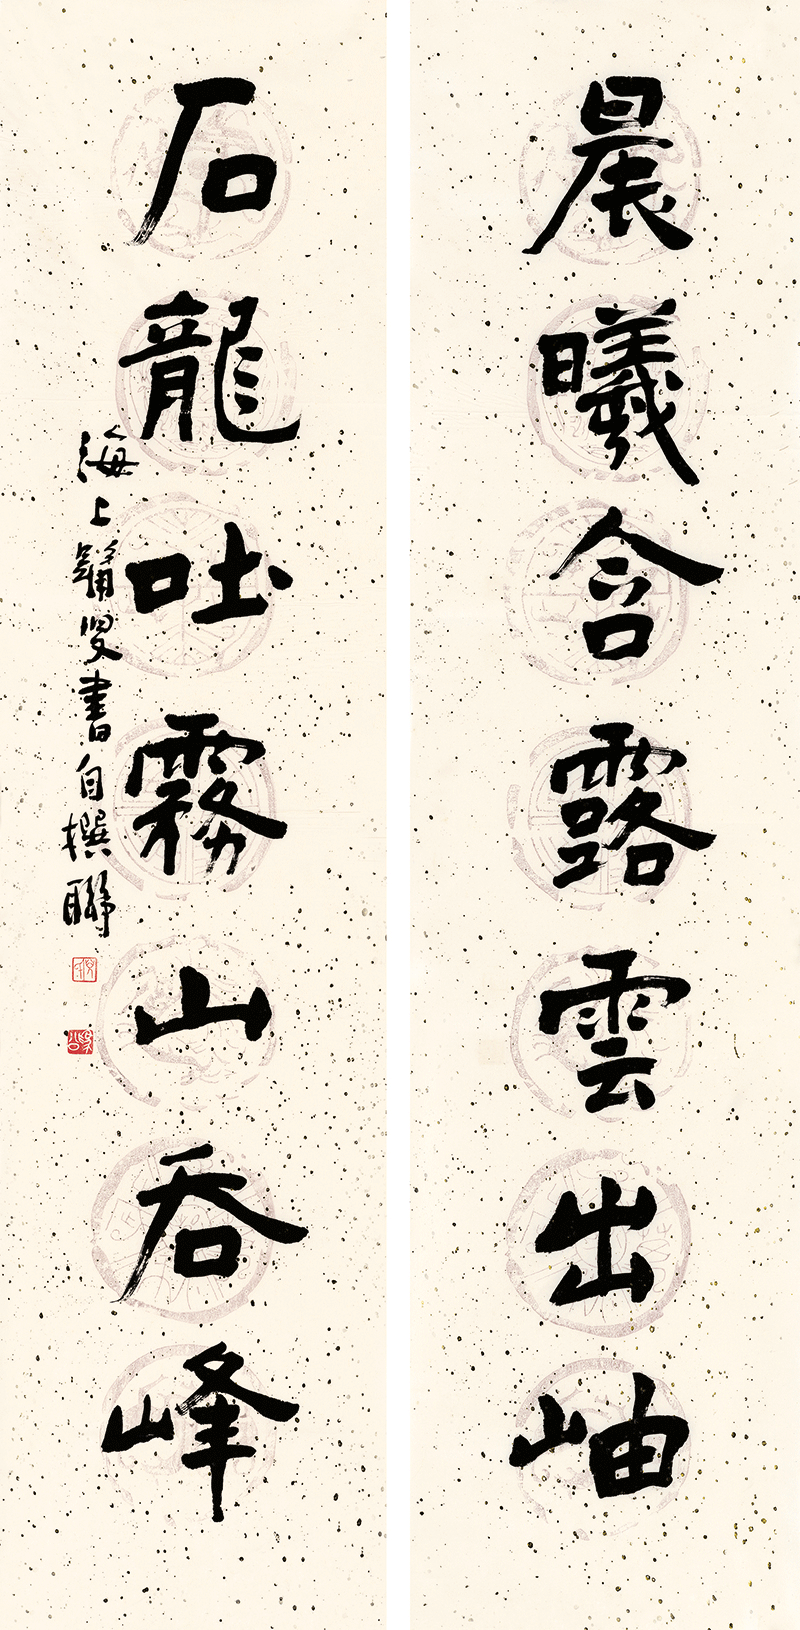 晨曦含露雲出岫
石龍吐霧山吞峰
海上鬴叟書自撰聯